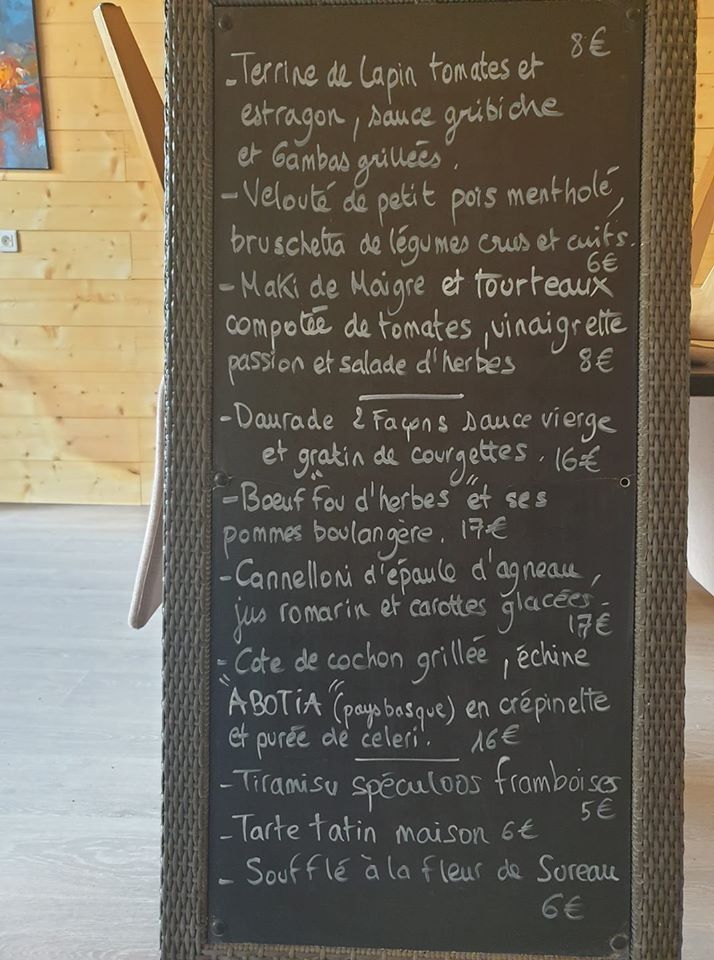 8€
-Terrine de Lapin tomates et
estragon, sauce gribiche
et Gambas grillées.
- Velouté de petit pois mentholé,
bruschetta de légumes crus et cuits.
6€
- Maki de Maigre et Tourteaux
compotée de tomates, vinaigrette
passion et salade d'herbes 8€
- Daurade 2 Façons sauce vierge
et gratin de courgettes. 16€
- Bœuf "Fou d'herbes" et ses
pommes boulangère. 17€
- Cannelloni d'épaule d'agneau,
jus romarin et carottes glacées.
17€
- Cote de cochon grillée, échine
"ABOTiA" (pays basque) en crépinette
et purée de celeri. 16€
- Tiramisu spéculoos framboises
5€
- Tarte tatin maison 6€
- Soufflé à la fleur de Sureau
6€